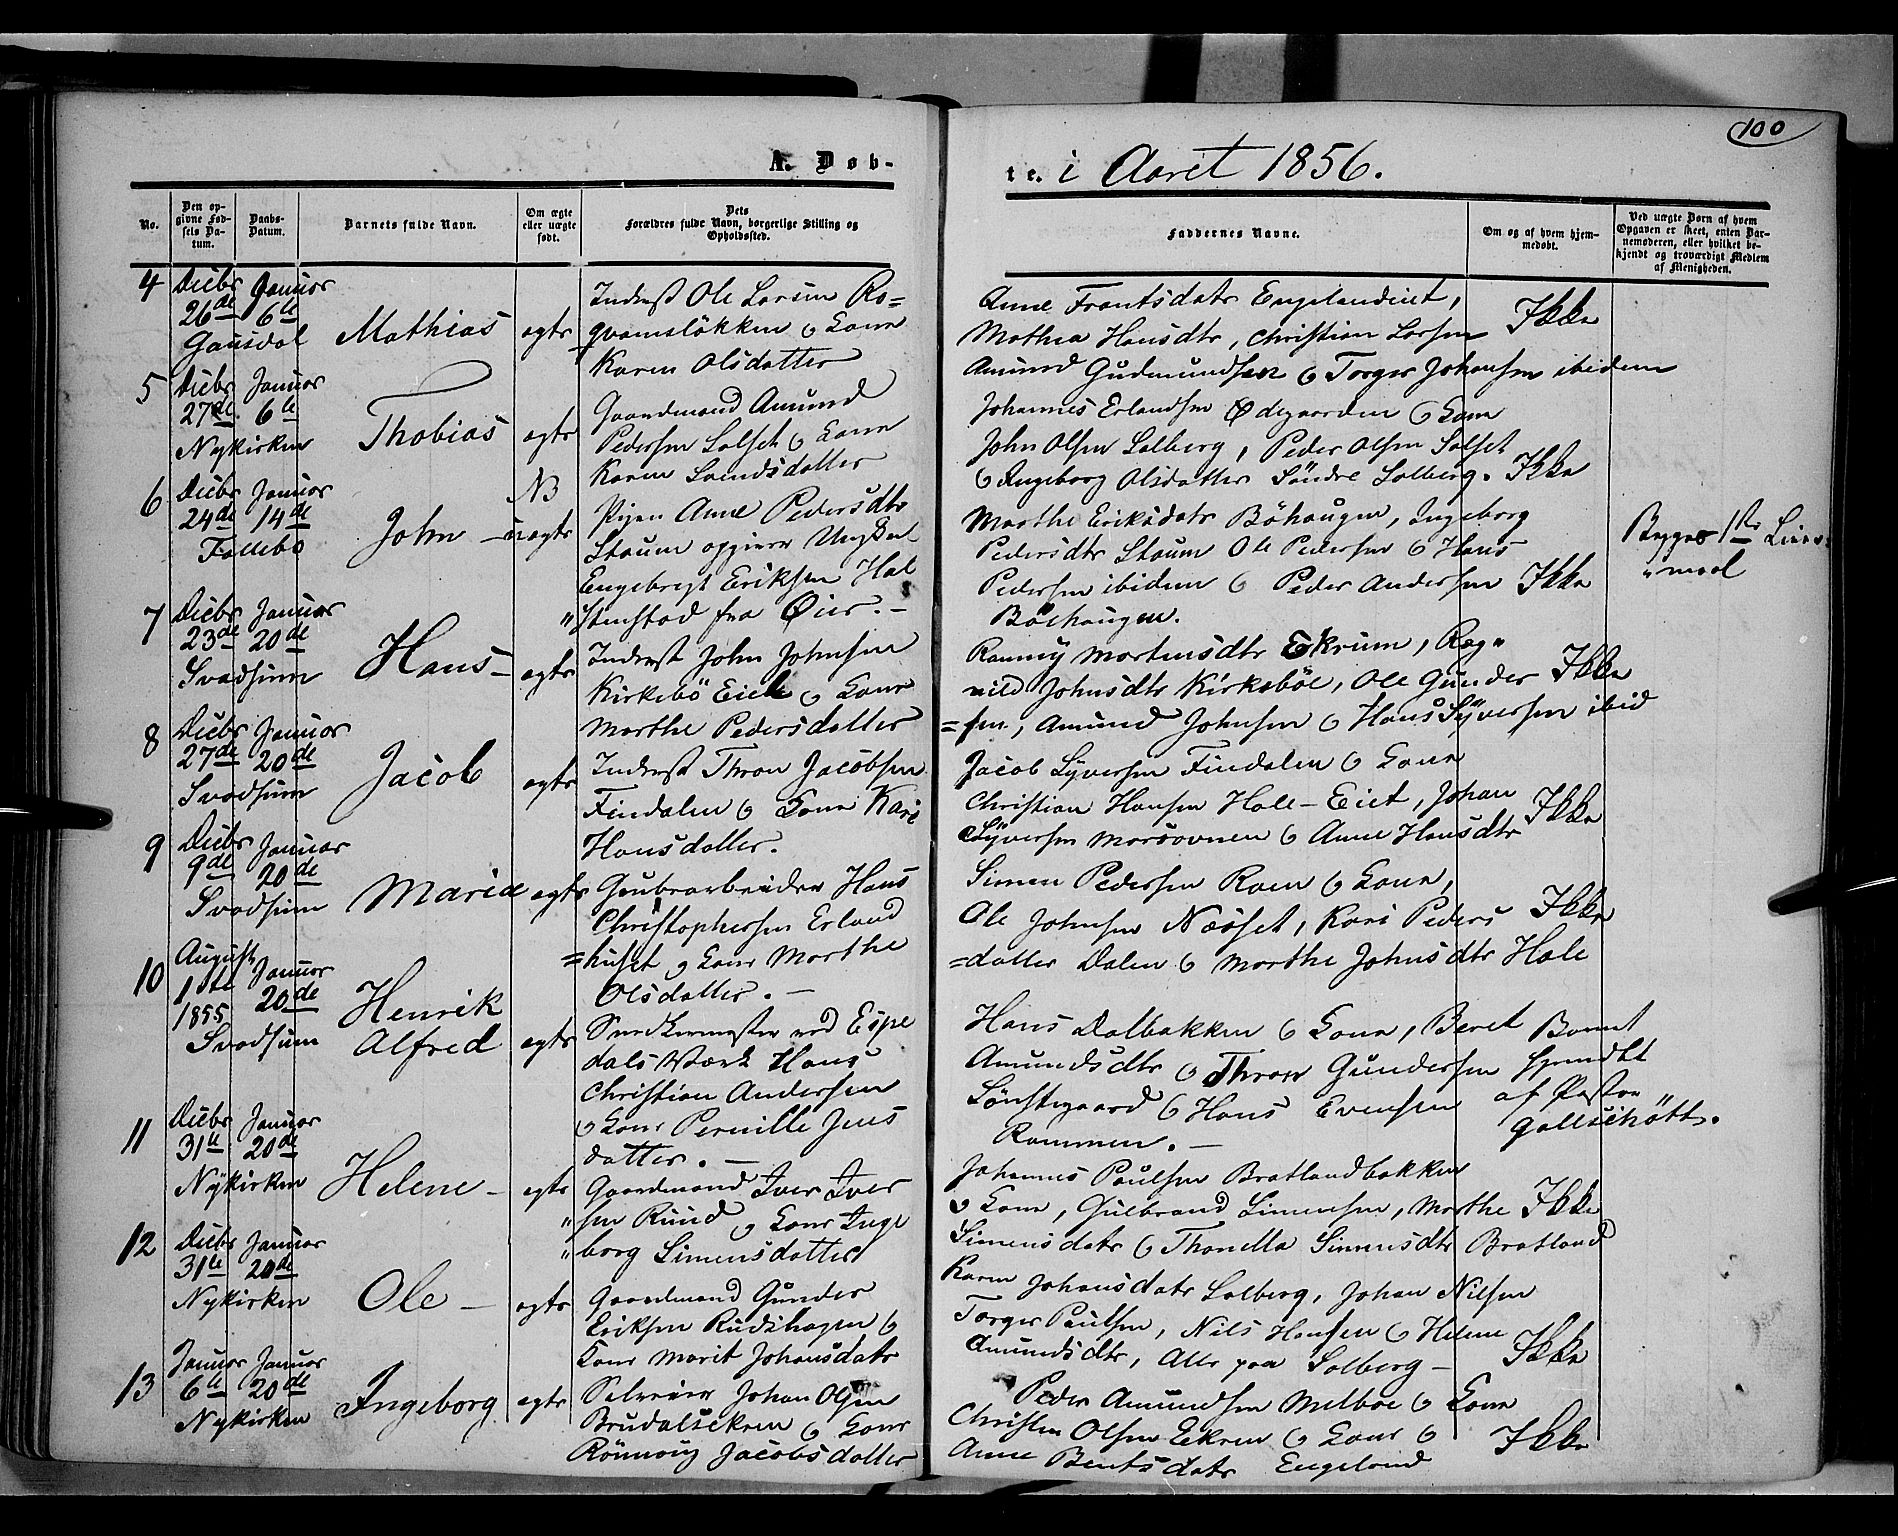 100
A. Døb-
te. i Aaret 1856.
No.
Den op-
givne Fød-
sels Da-
tum.
Daabs-
Datum.
Barnets fulde Navn.
Om ægte
eller uægte
født.
Dets
Forældres fulde Navn, borgerlige Stilling og
Opholdssted.
Faddernes Navne.
Om og af hvem hjem-
medøbt.
Ved uægte Børn af hvem
Opgaven er skeet, enten Bar-
nemoderen, eller hvilket be-
kjendt og troværdigt Medlem
af Menigheden.
4
Decbr Januar
26de 6te
Gausdal
Mathias
ægte
Inderst Ole Larsen Ro=
qvamsløkken o Kone
Karen Olsdatter
Anne Frantsdatr Engelandeiet,
Mathea Hansdtr, Christian Larsen
Amund Gudmundsen o Torger Johansen ibidem
Ikke
5
Decbr Januar
27de 6te
Nykirken
Thobias
ægte
Gaardmand Amund
Pedersen Solset o Kone
Karen Svendsdatter
Johannes Erlandsen Ødegaarden o Kone
John Olsen Solberg, Peder Olsen Solset
o Ingeborg Olsdatter Søndre Solberg.
Ikke
6
Decbr Januar
24de 14de
Follebo
John
NB
uægte
Pigen Anne Pedersdtr
Staum opgiver Ungkarl
Engebregt Eriksen Hal
"stenstad fra Øier.
Marthe Eriksdatr Böhaugen, Ingeborg
Pedersdtr Staum Ole Pedersen o Hans
Pedersen ibidem o Peder Andersen
Böehaugen.
Ikke
Begges 1ste Leier-
"maal
7
Decbr Januar
23de 20de
Svadsum
Hans
ægte
Inderst John Johnsen
Kirkebö Eiet o Kone
Marthe Pedersdatter
Ronnoy Mortensdtr Ekrum, Rag"
nild Johnsdtr Kirkeböe, Ole Gunder
=sen, Amund Johnsen o Hans Syversen ibid
Ikke
8
Decbr Januar
27de 20de
Svadsum
Jacob
ægte
Inderst Thron Jacobsen
Findalen o Kone Kari
Hansdatter.
Jacob Syversen Findalen o Kone
Christian Hansen Hole-Eiet, Johan
Syversen o Anne Hansdtr
Ikke
9
Decbr Januar
9de 20de
Svadsum
Maria
ægte
Grubearbeider Hans
Christophersen Erland
=huset o Kone Marthe
Olsdatter.
Simen Pedersen Roen o Kone,
Ole Johnsen Næsset, Kari Peders
=datter Dalen o Marthe Johnsdtr Hole
Ikke
10
August Januar
1ste 20de
1855
Svadsum
Henrik
Alfred
ægte
Snedkermester ved Espe
dals Værk Hans
Christian Andersen
o Kone Pernille Jens
datter.
Hans Dalbakken o Kone, Beret
Amundsdtr o Thron Gundersen
Lönstegaard o Hans Evensen
Rommen.
Barnet
af Pastor
Gallschött.
11
Decbr Januar
31te 20de
Nykirken
Helene
ægte
Gaardmand Iver Iver
"sen Rund o Kone Inge
"borg Simensdatter
Johannes Paulsen Bratlandbakken
o Kone, Gulbrand Simensen, Marthe
Simensdatr o Thonetta Simensdtr Bratland
Ikke
12
Decbr Januar
31te 20de
Nykirken
Ole
ægte
Gaardmand Gunder
Eriksen Rudshagen o
Kone Marit Johansdatr
Karen Johansdatr Solberg, Johan Nilsen
Torger Paulsen, Nils Hansen o Helene
Amundsdtr, Alle paa Solberg
Ikke
13
Januar Januar
6te 20de
Nykirken
Ingeborg
ægte
Selveier Johan Olsen
Brudalsekren o Kone
Rönnoug Jacobsdatter
Peder Amundsen Melböe o Kone
Christen Olsen Ekren o Kone o
Anne Bentsdatr Engeland
Ikke